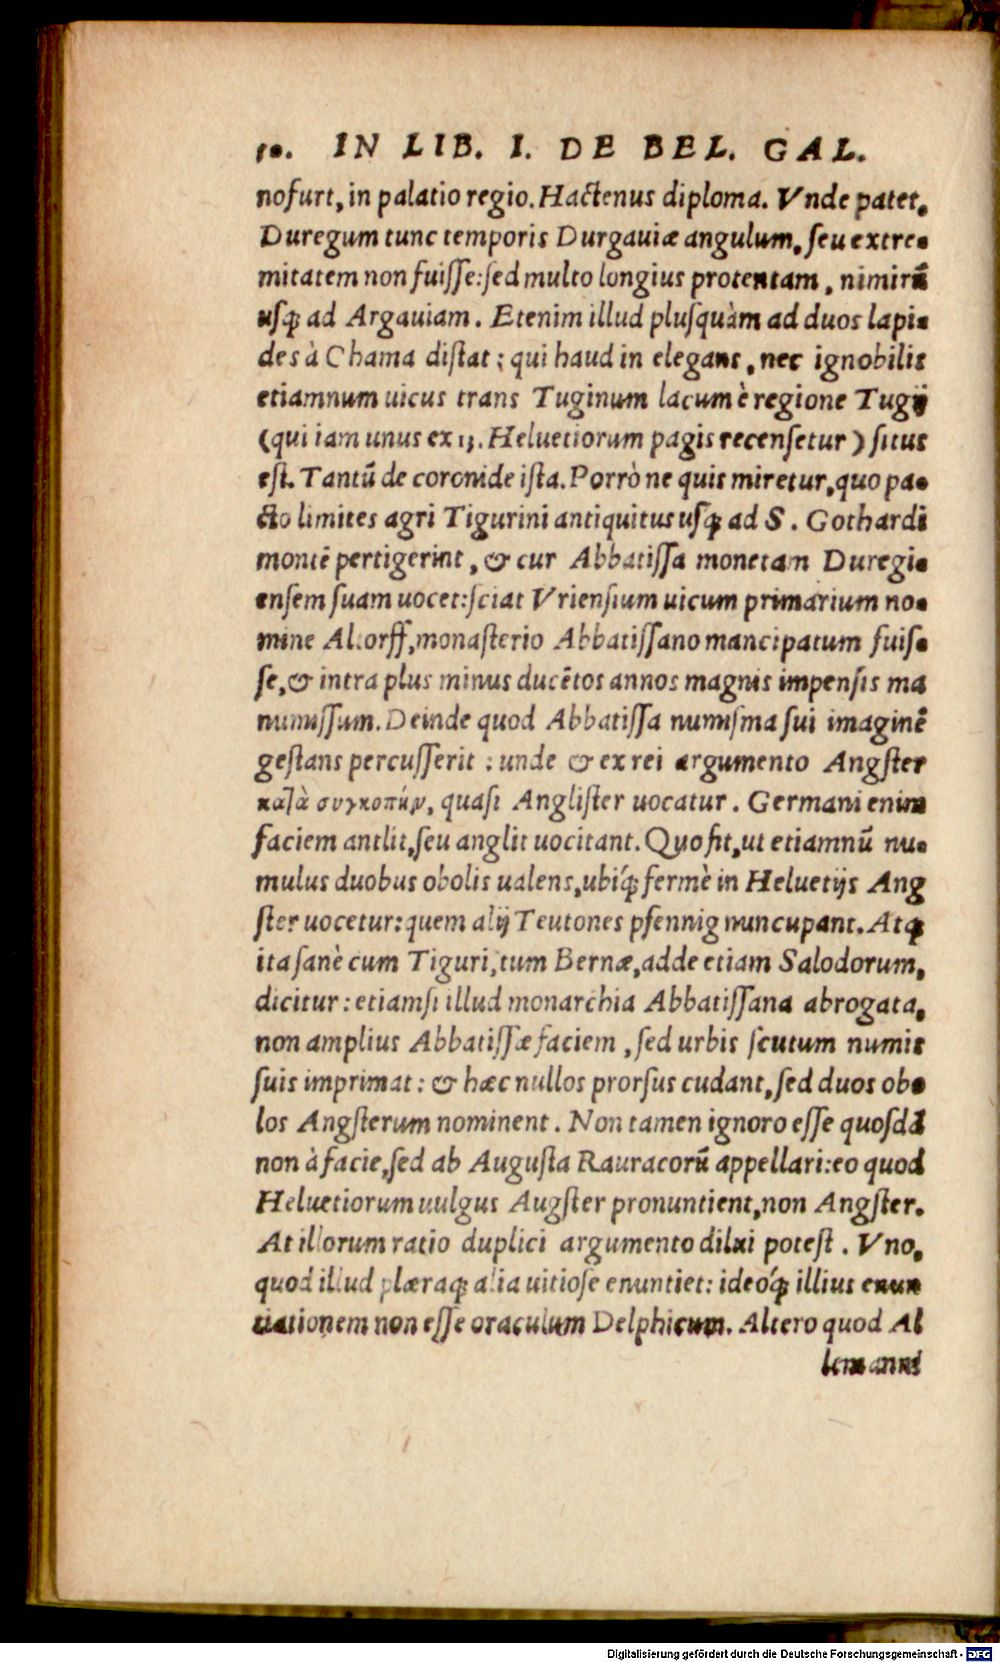 50. IN LIB. I. DE BEL. GAL.
nofurt, in palatio regio. Hactenus diploma. Vnde patet,
Duregum tunc temporis Durgauiæ angulum, ſeu extre-
mitatem non fuiſſe: ſed multo longius protentam, nimirũ
uſq; ad Argauiam. Etenim illud pluſquàm ad duos lapi-
des à Chama diſtat; qui haud in elegans, nec ignobilis
etiamnum uicus trans Tuginum lacum è regione Tugij
(qui iam unus ex 13. Heluetiorum pagis recenſetur) ſitus
eſt. Tantũ de coronide iſta. Porrò ne quis miretur, quo pa-
cto limites agri Tigurini antiquitus uſq; ad S. Gothardi
montẽ pertigerint, & cur Abbatiſſa monetam Duregi-
enſem ſuam uocet: ſciat Vrienſium uicum primarium no-
mine Altorff, monaſterio Abbatiſſano mancipatum fuiſ-
ſe, & intra plus minus ducẽtos annos magnis impenſis ma
numiſſum. Deinde quod Abbatiſſa numiſma ſui imaginẽ
geſtans percuſſerit: unde & ex rei argumento Angſter
κατὰ συγκοπὴν, quaſi Angliſter uocatur. Germani enim
faciem antlit, ſeu anglit uocitant. Quo fit, ut etiamnũ nu-
mulus duobus obolis ualens, ubiq́; fermè in Heluetijs Ang
ſter uocetur: quem alij Teutones pfennig nuncupant. Atq;
ita ſanè cum Tiguri, tum Bernæ, adde etiam Salodorum,
dicitur: etiamſi illud monarchia Abbatiſſana abrogata,
non amplius Abbatiſſæ faciem, ſed urbis ſcutum numis
ſuis imprimat: & hæc nullos prorſus cudant, ſed duos obo
los Angſterum nominent. Non tamen ignoro eſſe quoſdã
non à facie, ſed ab Auguſta Rauracorũ appellari: eo quod
Heluetiorum uulgus Augſter pronuntient, non Angſter.
At illorum ratio duplici argumento dilui poteſt. Vno,
quod illud plæraq; alia uitioſe enuntiet: ideoq́; illius enun
tiationem non eſſe oraculum Delphicum. Altero quod Al
lemanni
Digitalisierung gefördert durch die Deutsche Forschungsgemeinschaft - DFG